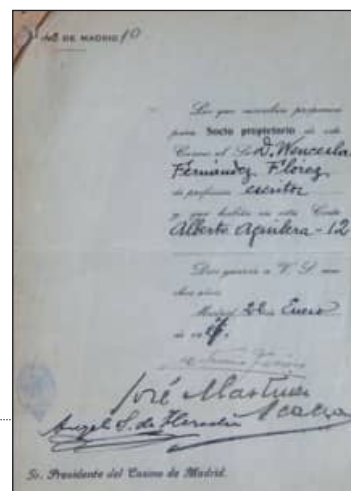 DE MADRID
Los que suscriben proponen
para Socio propietario de este
Casino al Sr. D. Wencesla
Fernández Flórez
de profesión escritor
y que habita en esta Corte
Alberto Aguilera - 12
Dios guarde a V. S. mu-
chos años.
Madrid 22 Enero
de 19
José Martínez
Angel S. de Heredia
Sr. Presidente del Casino de Madrid.